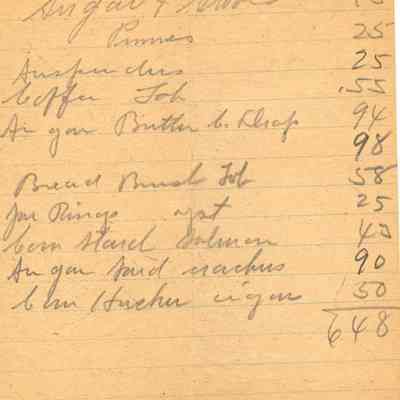 Sugar &
Prunes 25
Suspenders 25
Coffee Tob .55
Sugar Butter C. 94
98
Bread Brush Tob 58
Jar Rings 25
Corn Starch Salmon 45
Sugar crackers 90
cigars 50
648